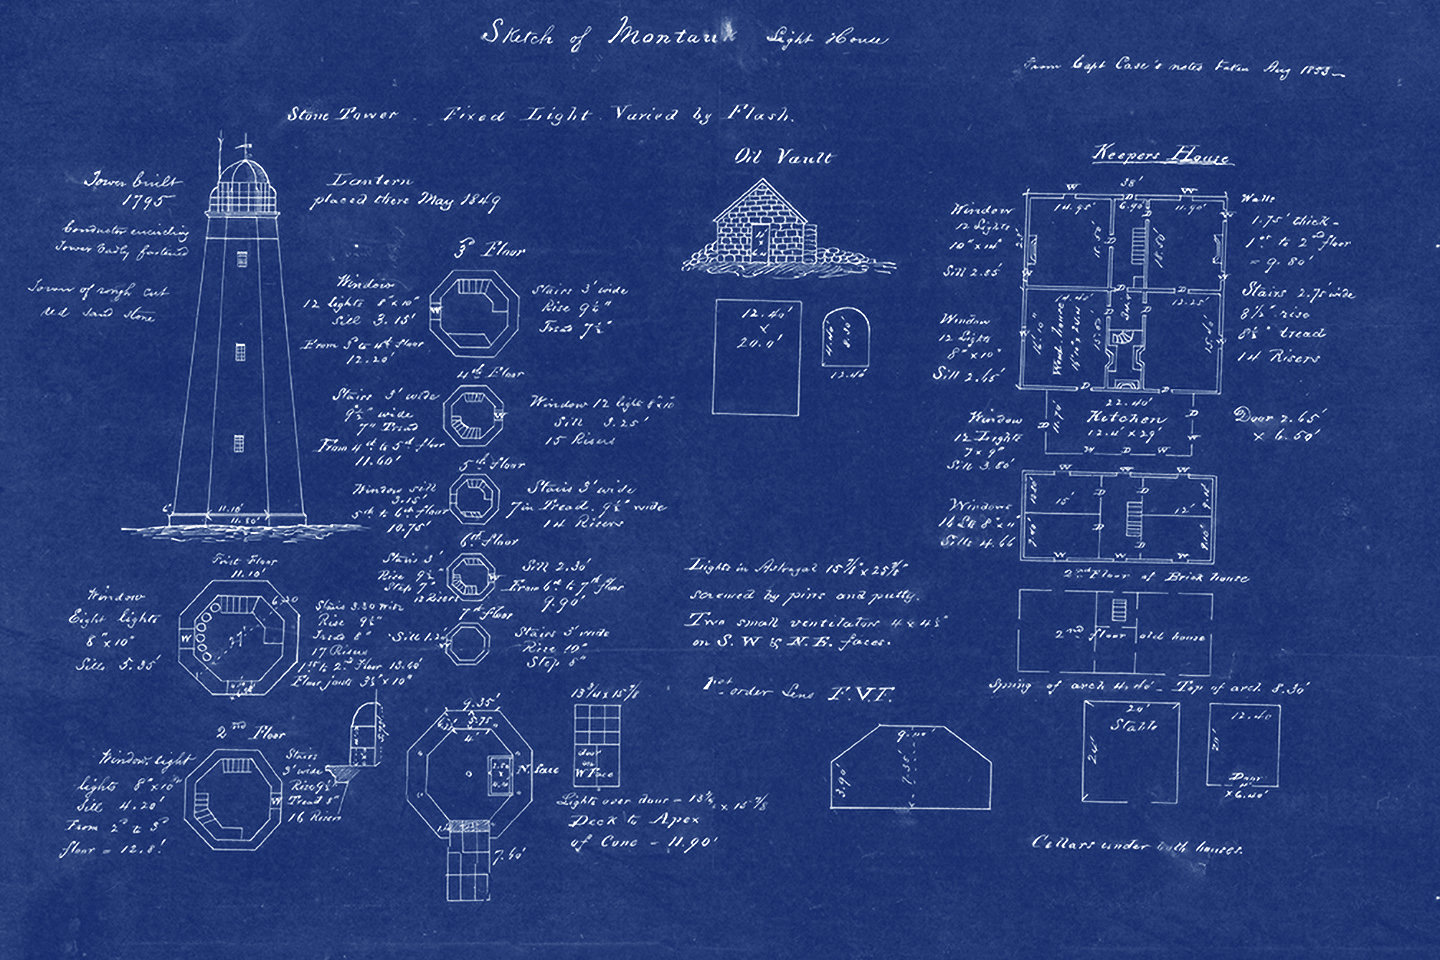 Sketch of Montauk Light House
From Capt Case's notes taken Aug 1853
Stone Tower. Fixed Light Varied by Flash.
Tower built
1795
Conductor encircling
Tower badly fastened
Tower of rough cut
red sand stone
Lantern
placed there May 1849
6'
11.10'
11.80'
3d Floor
Window
12 lights 8" x 10"
Sill 3.15'
From 3d to 4th floor
12.20'
W
Stairs 3' wide
Rise 9½"
Tread 7½"
4th Floor
Stairs 3' wide
9½" wide
7" Tread
From 4th to 5th floor
11.60'
W
Window 12 lights 8"x10"
Sill 3.25'
15 Risers
5th floor
Window sill
3.15'
5th to 6th floor
10.75'
Stairs 3' wide
7 in Tread. 9½" wide
14 Risers
6th floor
Stairs 3'
Rise 9½"
Step 7"
12 Risers
W
Sill 2.30'
From 6th to 7th floor
9.90'
7th floor
Sill 1.20'
W
Stairs 3' wide
Rise 10"
Step 8"
First Floor
11.10'
Window
Eight lights
8" x 10"
Sills 5.35'
W
6.20
Stairs 3.30 wide
Rise 9½"
Tread 8"
17 Risers
1st to 2d Floor 13.40'
Floor joists 3½" x 10"
2nd Floor
Window Eight
lights 8" x 10"
Sill 4.20'
From 2d to 3d
floor = 12.8'
W
Stairs
3' wide
Rise 9½"
Tread 8"
16 Risers
9.35'
5.75
4'
N. face
7.40'
13¾ x 15⅞
door
W Face
Lights over door = 13¾ x 15⅞
Deck to Apex
of Cone = 11.90'
Oil Vault
12.40'
x
20.0'
4.40'
8.30'
12.40'
Lights in Astragal 15⅞" x 25⅞"
screwed by pins and putty.
Two small ventilators 4 x 4½"
on S.W & N.E. faces.
1st order Lens F.V.F.
9.00'
7.35'
3.90'
Keepers House
38'
W
D
W
14.95'
6.90'
11.90'
Window
12 Lights
10" x 14"
Sill 2.85'
Walls
1.75' thick -
1st to 2nd floor
= 9.80'
Stairs 2.75 wide
8½" rise
8½" tread
14 Risers
Window
12 Lights
8" x 10"
Sill 2.45'
14.40'
12.25'
16.10'
15.60'
22.40'
Kitchen
12.4' x 29'
11.70'
D
W
D
W
D
W
Window
12 Lights
7" x 9"
Sill 3.80'
Door 2.65'
x 6.50'
Windows
16 Lts 8" x 11"
Sills 4.66
15'
12'
2nd Floor of Brick house
2nd floor old house
Spring of arch 4.40' - Top of arch 8.30'
20'
Stable
12.40
20'
Door
4'
x 6.40'
Cellars under both houses.